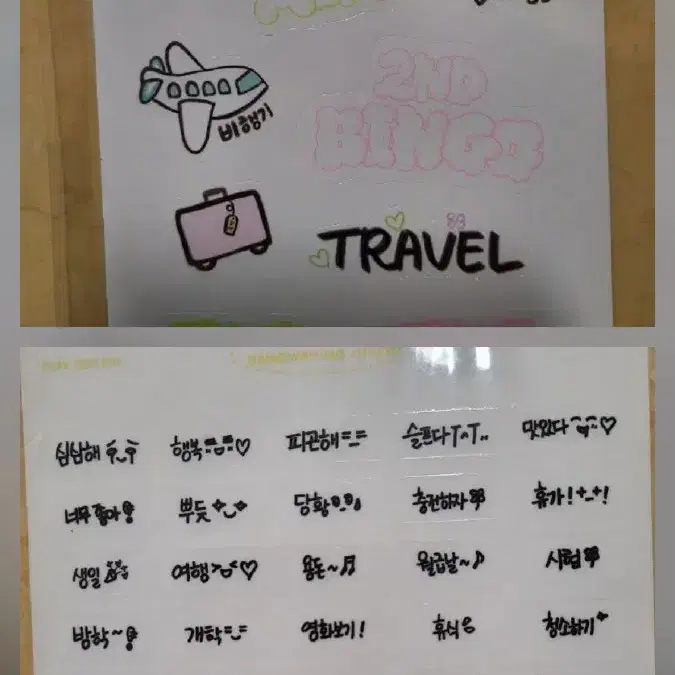 비행기
2ND
BINGO
TRAVEL
심심해 행복 피곤해 슬프다 맛있다
너무 좋아 뿌듯 당황 충전하자 휴가!
생일 여행 용돈~ 월급날~ 시험
방학~ 개학 영화보기! 휴식 청소하기